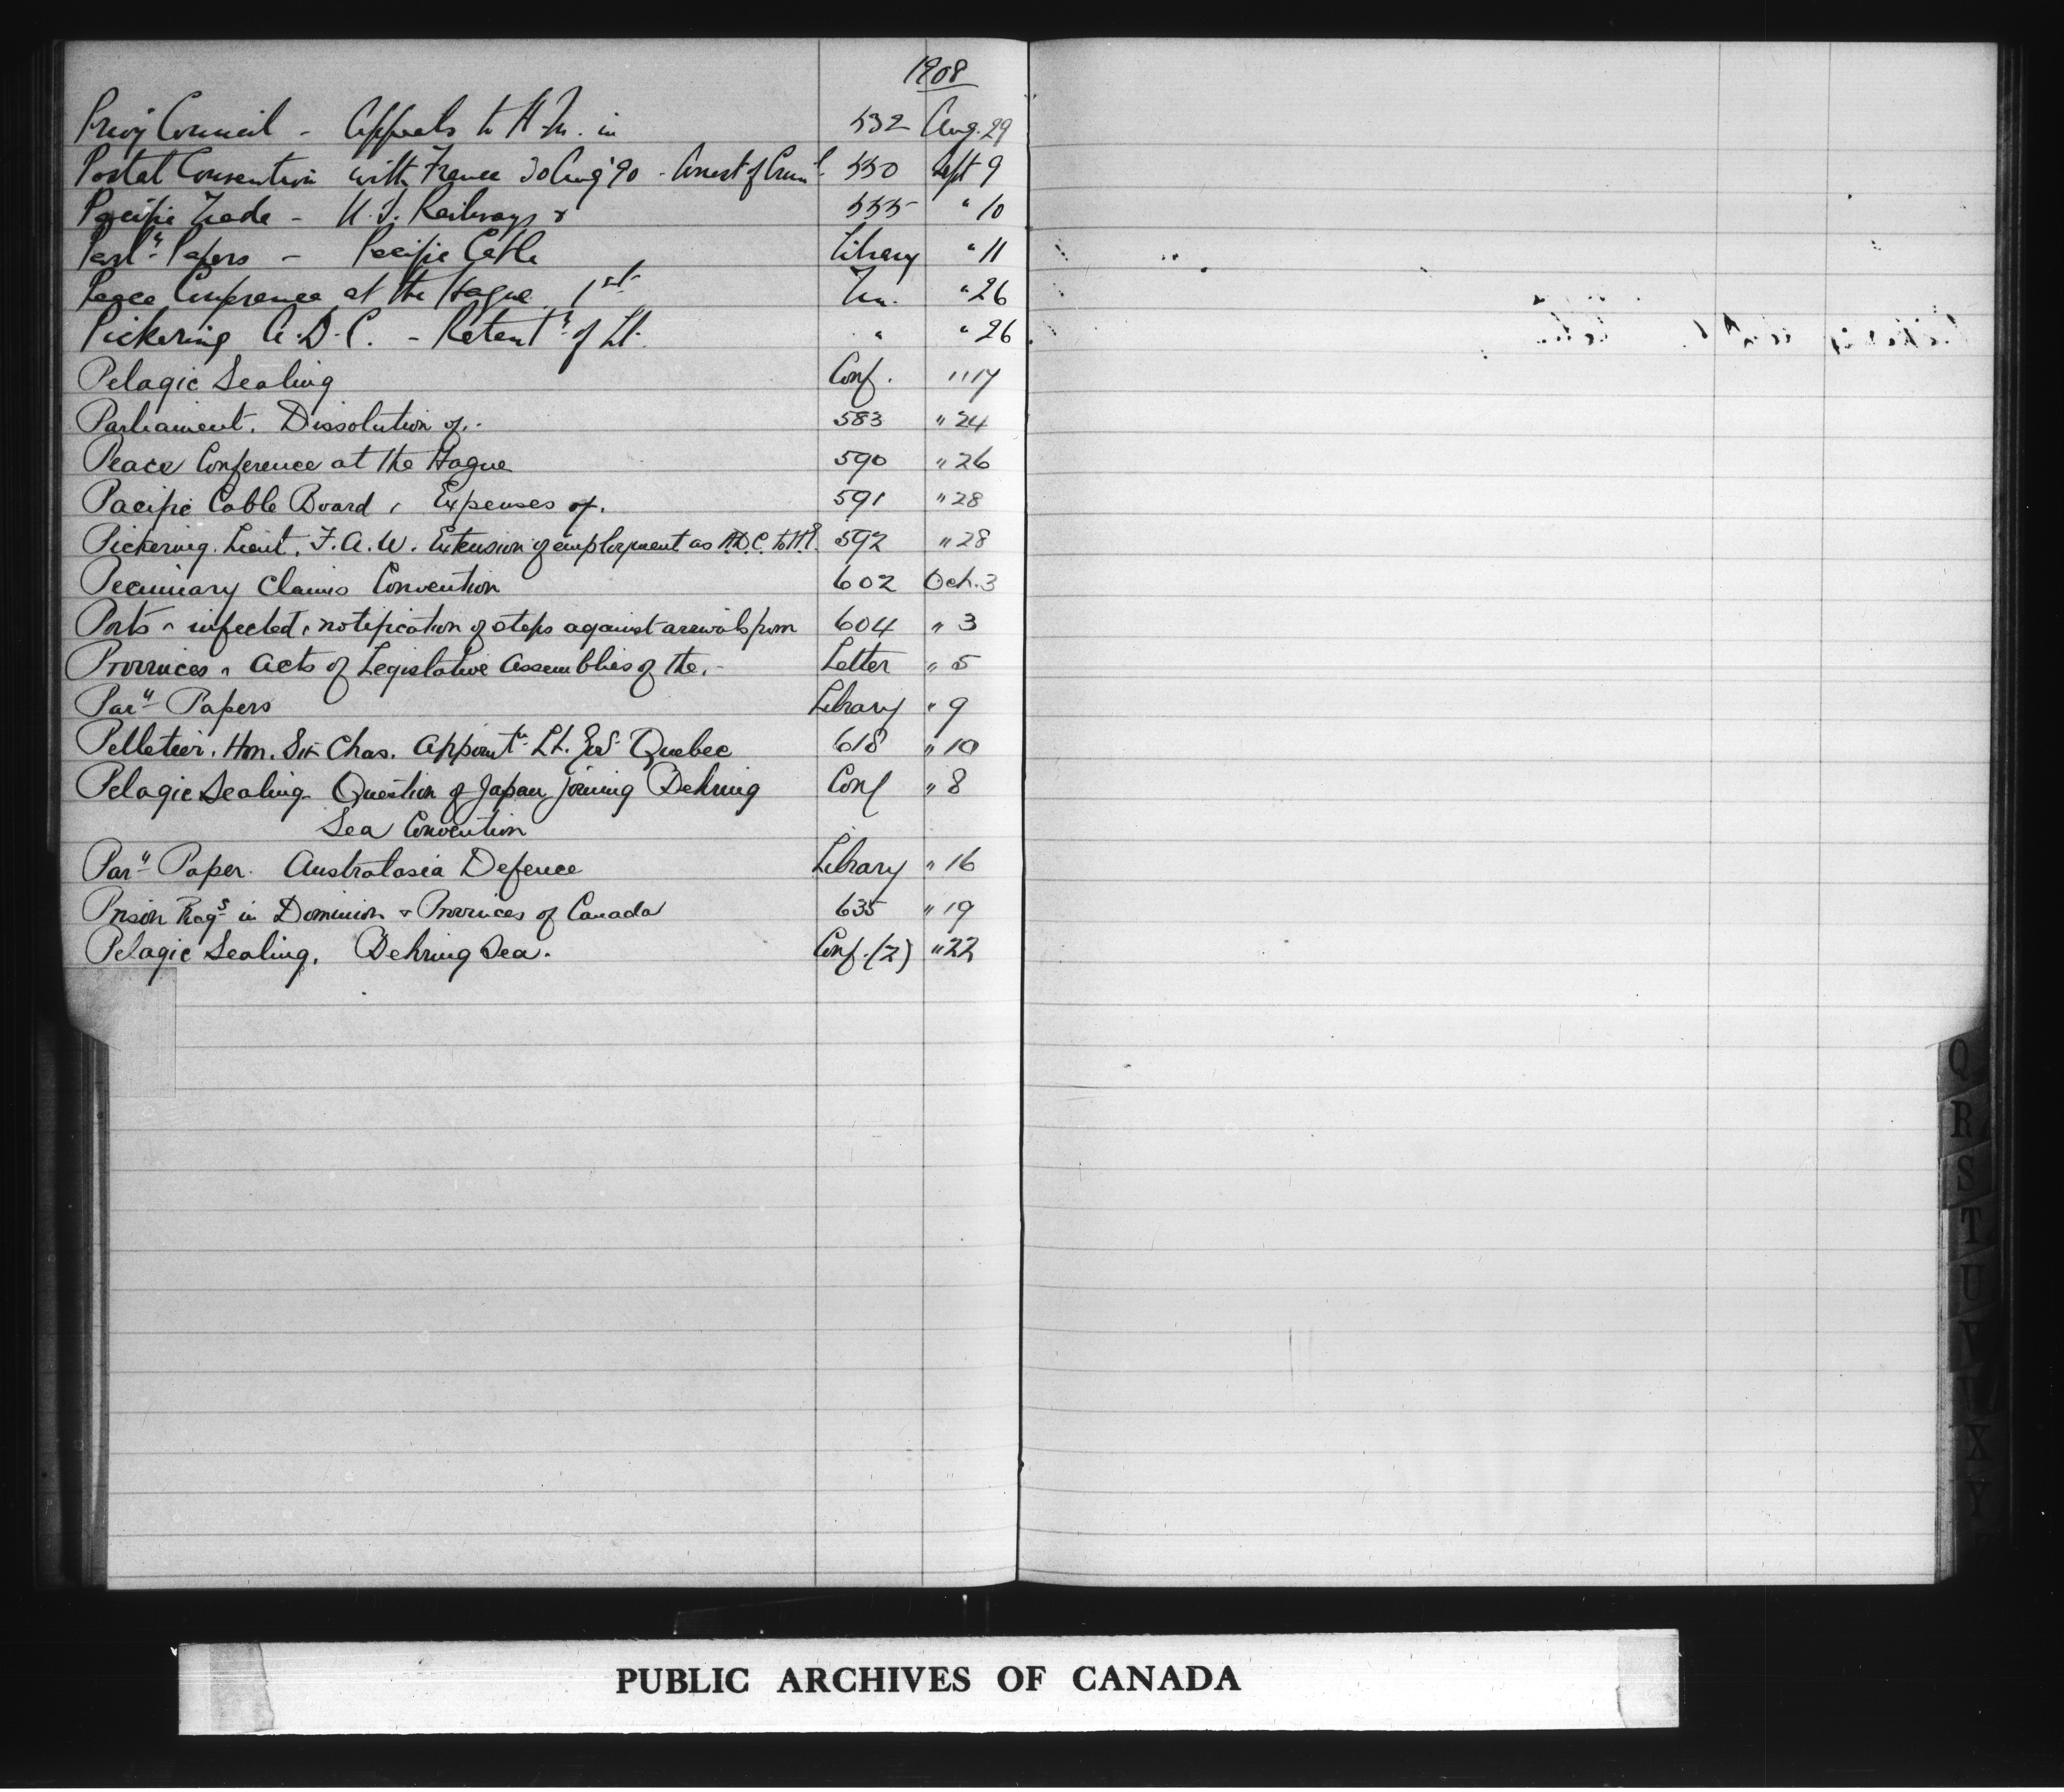 1908
Privy Council - Appeals to H.M. in 532 Aug. 29
Postal Convention with France 30 Aug '90 - Arrest of Crim^l 550 Sept 9
Pacific Trade - U.S. Railways & 555 " 10
Parl^y Papers - Pacific Cable Library " 11
Peace Conference at the Hague 1st " 26
Pickering A.D.C. - Retent^n of Lt. " " 26
Pelagic Sealing Conf. " 17
Parliament. Dissolution of. - 583 " 24
Peace Conference at the Hague 590 " 26
Pacific Cable Board, Expenses of. 591 " 28
Pickering. Lieut. F.A.W. Extension of employment as A.D.C. to H.E. 592 " 28
Pecuniary Claims Convention 602 Oct. 3
Ports - infected, notification of steps against arrivals from 604 " 3
Provinces - Acts of Legislative Assemblies of the. - Letter " 5
Par^y Papers Library " 9
Pelletier. Hon. Sir Chas. Appoint^m Lt. Gov^r Quebec 618 " 10
Pelagic Sealing Question of Japan joining Behring Conf " 8
Sea Convention
Par^y Paper. Australasia Defence Library " 16
Prison Reg^s in Dominion & Provinces of Canada 635 " 19
Pelagic Sealing. Behring Sea. Conf. (2) " 22
Q
R
S
T
U
X
Y
PUBLIC ARCHIVES OF CANADA